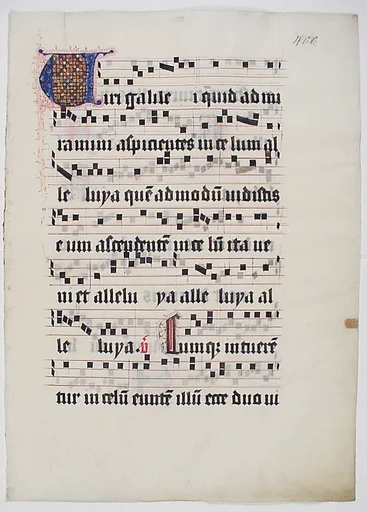 466
Viri galile i quid ad mi
ramini aspicientes in ce lum al
le luya quē ad modū uidistis
e um ascendentē in ce lū ita ue
ni et allelu ya alle luya al
le luya. ꝟ Cumq; intuerē
tur in celū euntē illū ecce duo ui